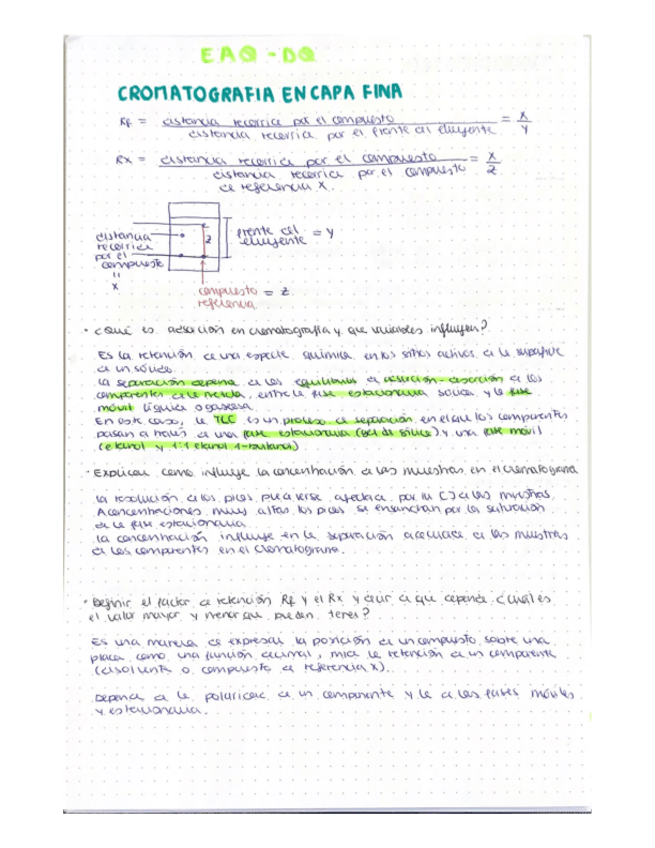 EAQ - DQ
CROMATOGRAFIA EN CAPA FINA
Rf = distancia recorrida por el compuesto / distancia recorrida por el frente del eluyente = X / Y
Rx = distancia recorrida por el compuesto / distancia recorrida por el compuesto de referencia X. = X / Z
distancia recorrida por el compuesto = X
Z
frente del eluyente = Y
compuesto referencia = Z
· ¿Qué es adsorción en cromatografía y que variables influyen?
Es la retención de una especie química en los sitios activos de la superficie
de un sólido.
La separación depende de los equilibrios de adsorción-desorción de los
componentes de la mezcla, entre la fase estacionaria sólida y la fase
móvil líquida o gaseosa.
En este caso, la TLC es un proceso de separación en el que los componentes
pasan a través de una fase estacionaria (gel de sílice) y una fase móvil
(etanol y 1:1 etanol 1-butanol)
· Explicar como influye la concentración de las muestras en el cromatograma
La resolución de los picos puede verse afectada por la [ ] de las muestras.
A concentraciones muy altas, los picos se ensanchan por la saturación
de la fase estacionaria.
La concentración influye en la separación adecuada de las muestras
de los componentes en el cromatograma.
· Definir el factor de retención Rf y el Rx y decir de que depende ¿Cuál es
el valor mayor y menor que pueden tener?
Es una manera de expresar la posición de un compuesto sobre una
placa como una función decimal, mide la retención de un componente
(disolvente o compuesto de referencia X).
Depende de la polaridad de un componente y la de las fases móviles
y estacionaria.